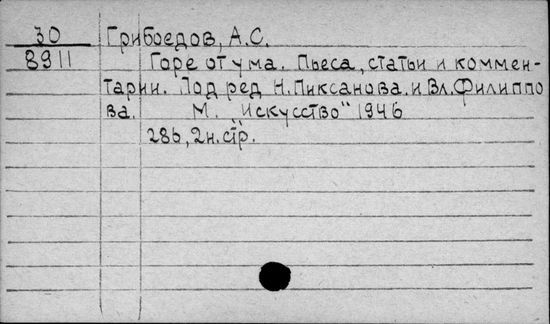 30 Грибоедов, А.С.
8911 Горе от ума. Пьеса, статьи и коммен-
тарии. Под ред Н.Пиксанова.и Вл.Филиппо
ва. М. "Искусство" 1946
286, 2н.стр.